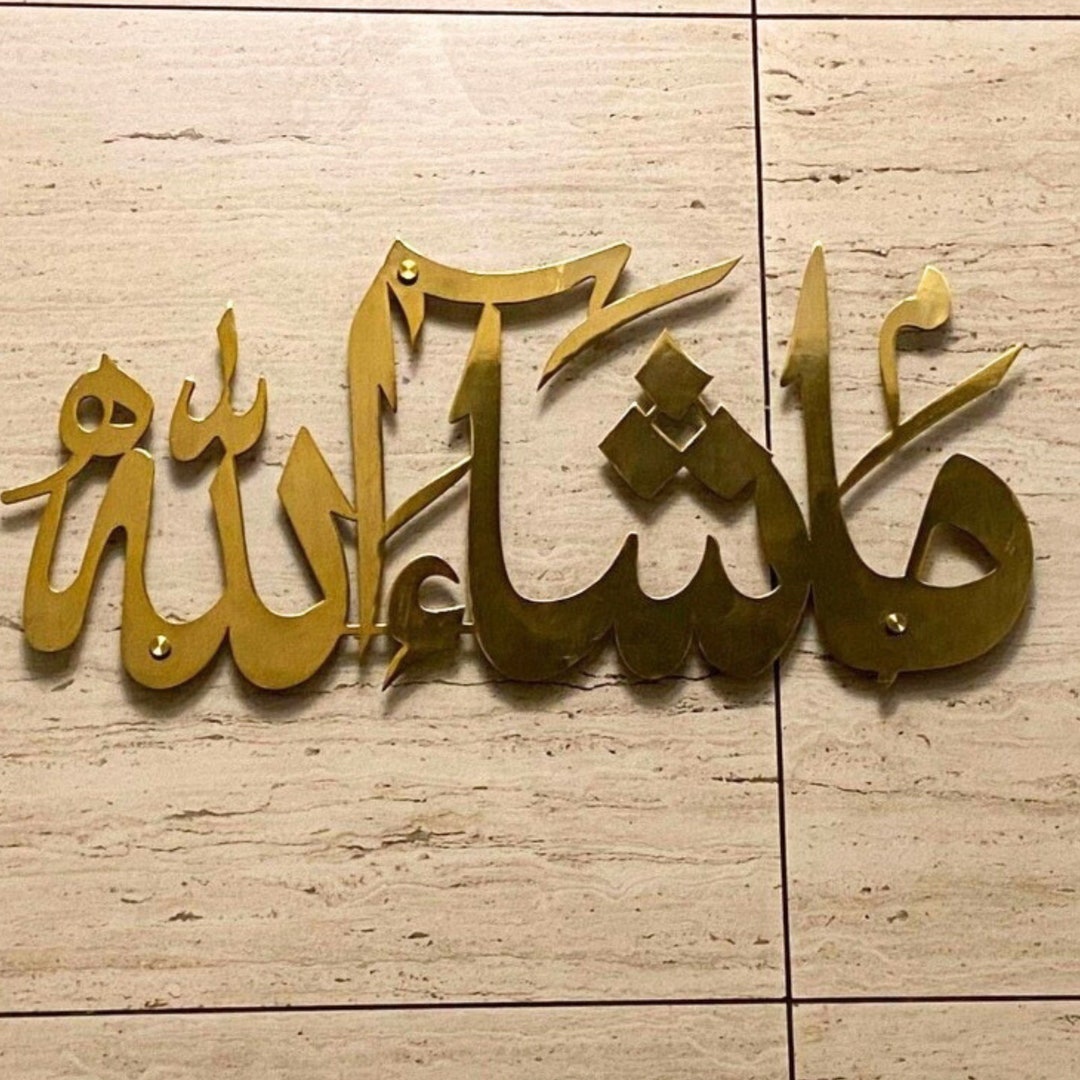 ما شآء الله